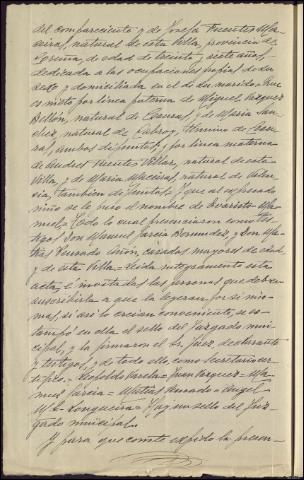 del compareciente y de Josefa Fuentes Ma-
neiro, natural de esta Villa, provincia de
Coruña, de edad de treinta y siete años,
dedicada a las ocupaciones propias de su
sexo y domiciliada en el de su marido = Que
es nieto por línea paterna de Miguel Vázquez
Bellón, natural de y de María San-
chez, natural de término de
ambos difuntos, y por línea materna
de Andres Fuentes Villar, natural de esta
Villa, y de María natural de
tambien difuntos, y que al expresado
niño se le puso el nombre de Evaristo Ma-
nuel = Todo lo cual presenciaron como tes-
tigos Don Manuel Garcia Bermudez y Don Ma-
tias casados mayores de edad,
y de esta Villa = Leida integramente esta
acta, e invitadas las personas que deben
suscribirla a que la leyeran por sí mis-
mas, si así lo creian conveniente, se es-
tampó en ella el sello del Juzgado muni-
cipal, y la firmaron el Sr. Juez, declarante
y testigos, y de todo ello como Secretario cer-
tifico = Leopoldo Varela = Juan Vázquez = Ma-
nuel Garcia = Matias = Angel
Mª Longueira = Hay un sello del Juz-
gado municipal.
Y para que conste expido la presen-